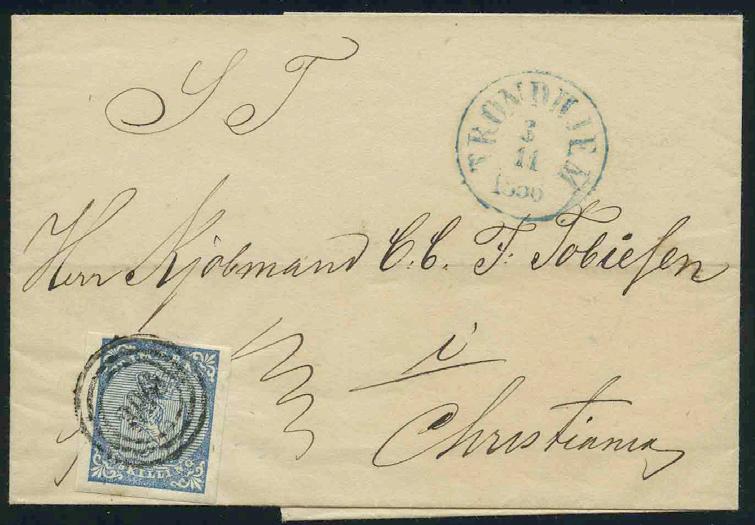 S T
TRONDHJEM
3
11
1856
Herr Kjøbmand C. C. F: Tobiesen
i
Christiania
SKILLING